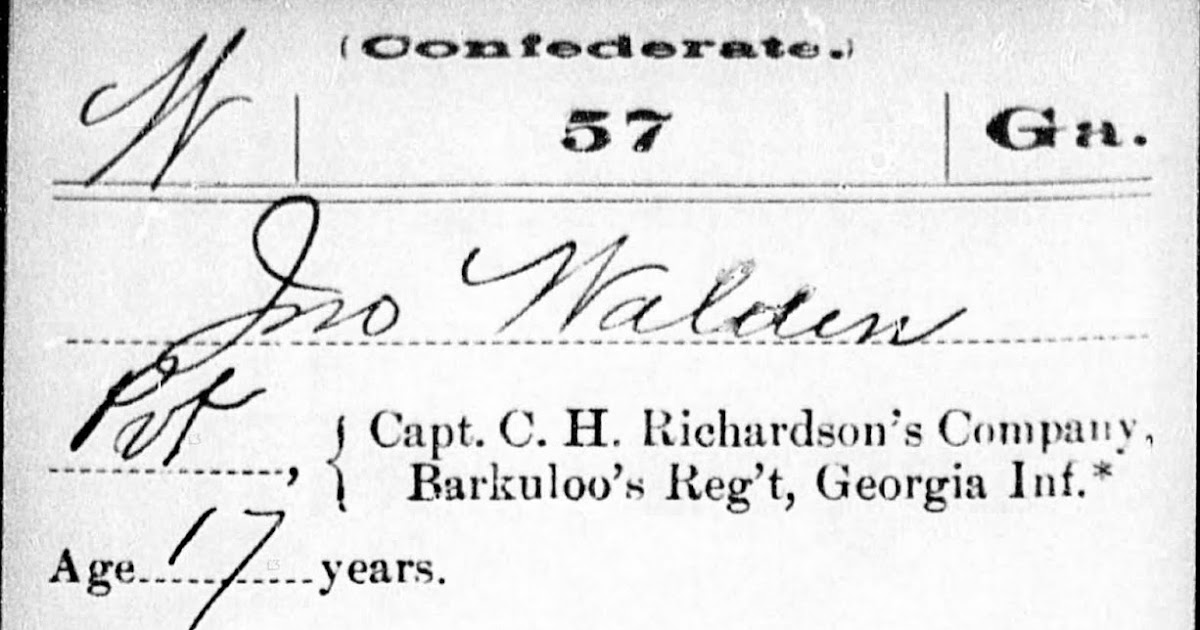 (Confederate.)
W 57 Ga.
Jno Walden
Pvt, } Capt. C. H. Richardson's Company,
Barkuloo's Reg't, Georgia Inf.*
Age 17 years.